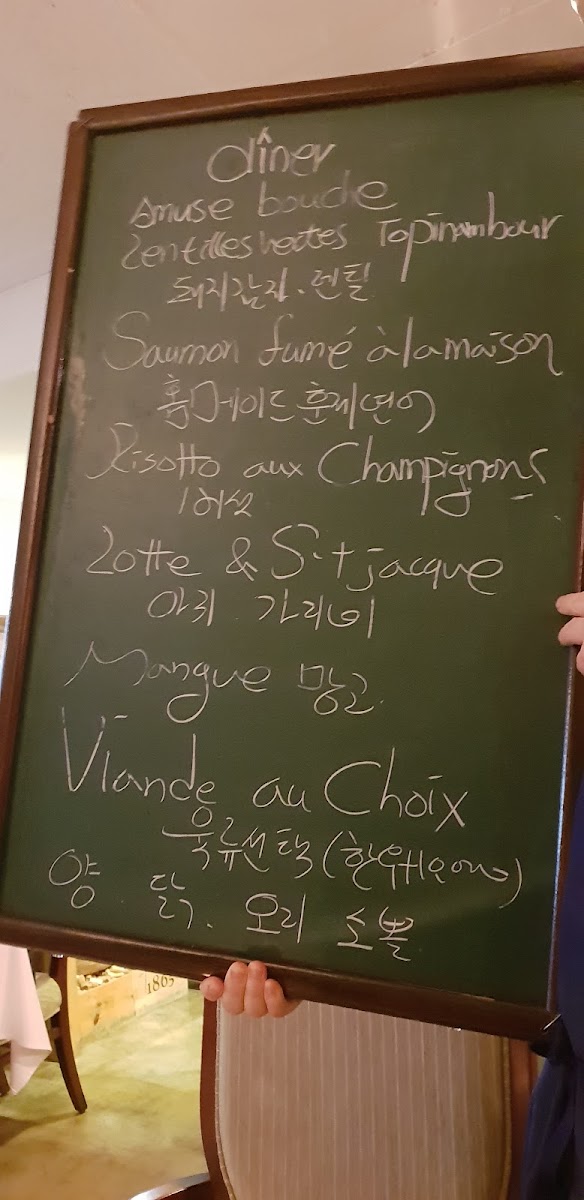 dîner
Amuse bouche
Lentilles vertes Topinambour
돼지감자. 렌틸
Saumon fumé à la maison
홈메이드 훈제연어
Risotto aux Champignons
버섯
Lotte & S.t jacque
아귀 가리비
Mangue 망고
Viande au Choix
육류선택
양 닭. 오리 소볼
1865